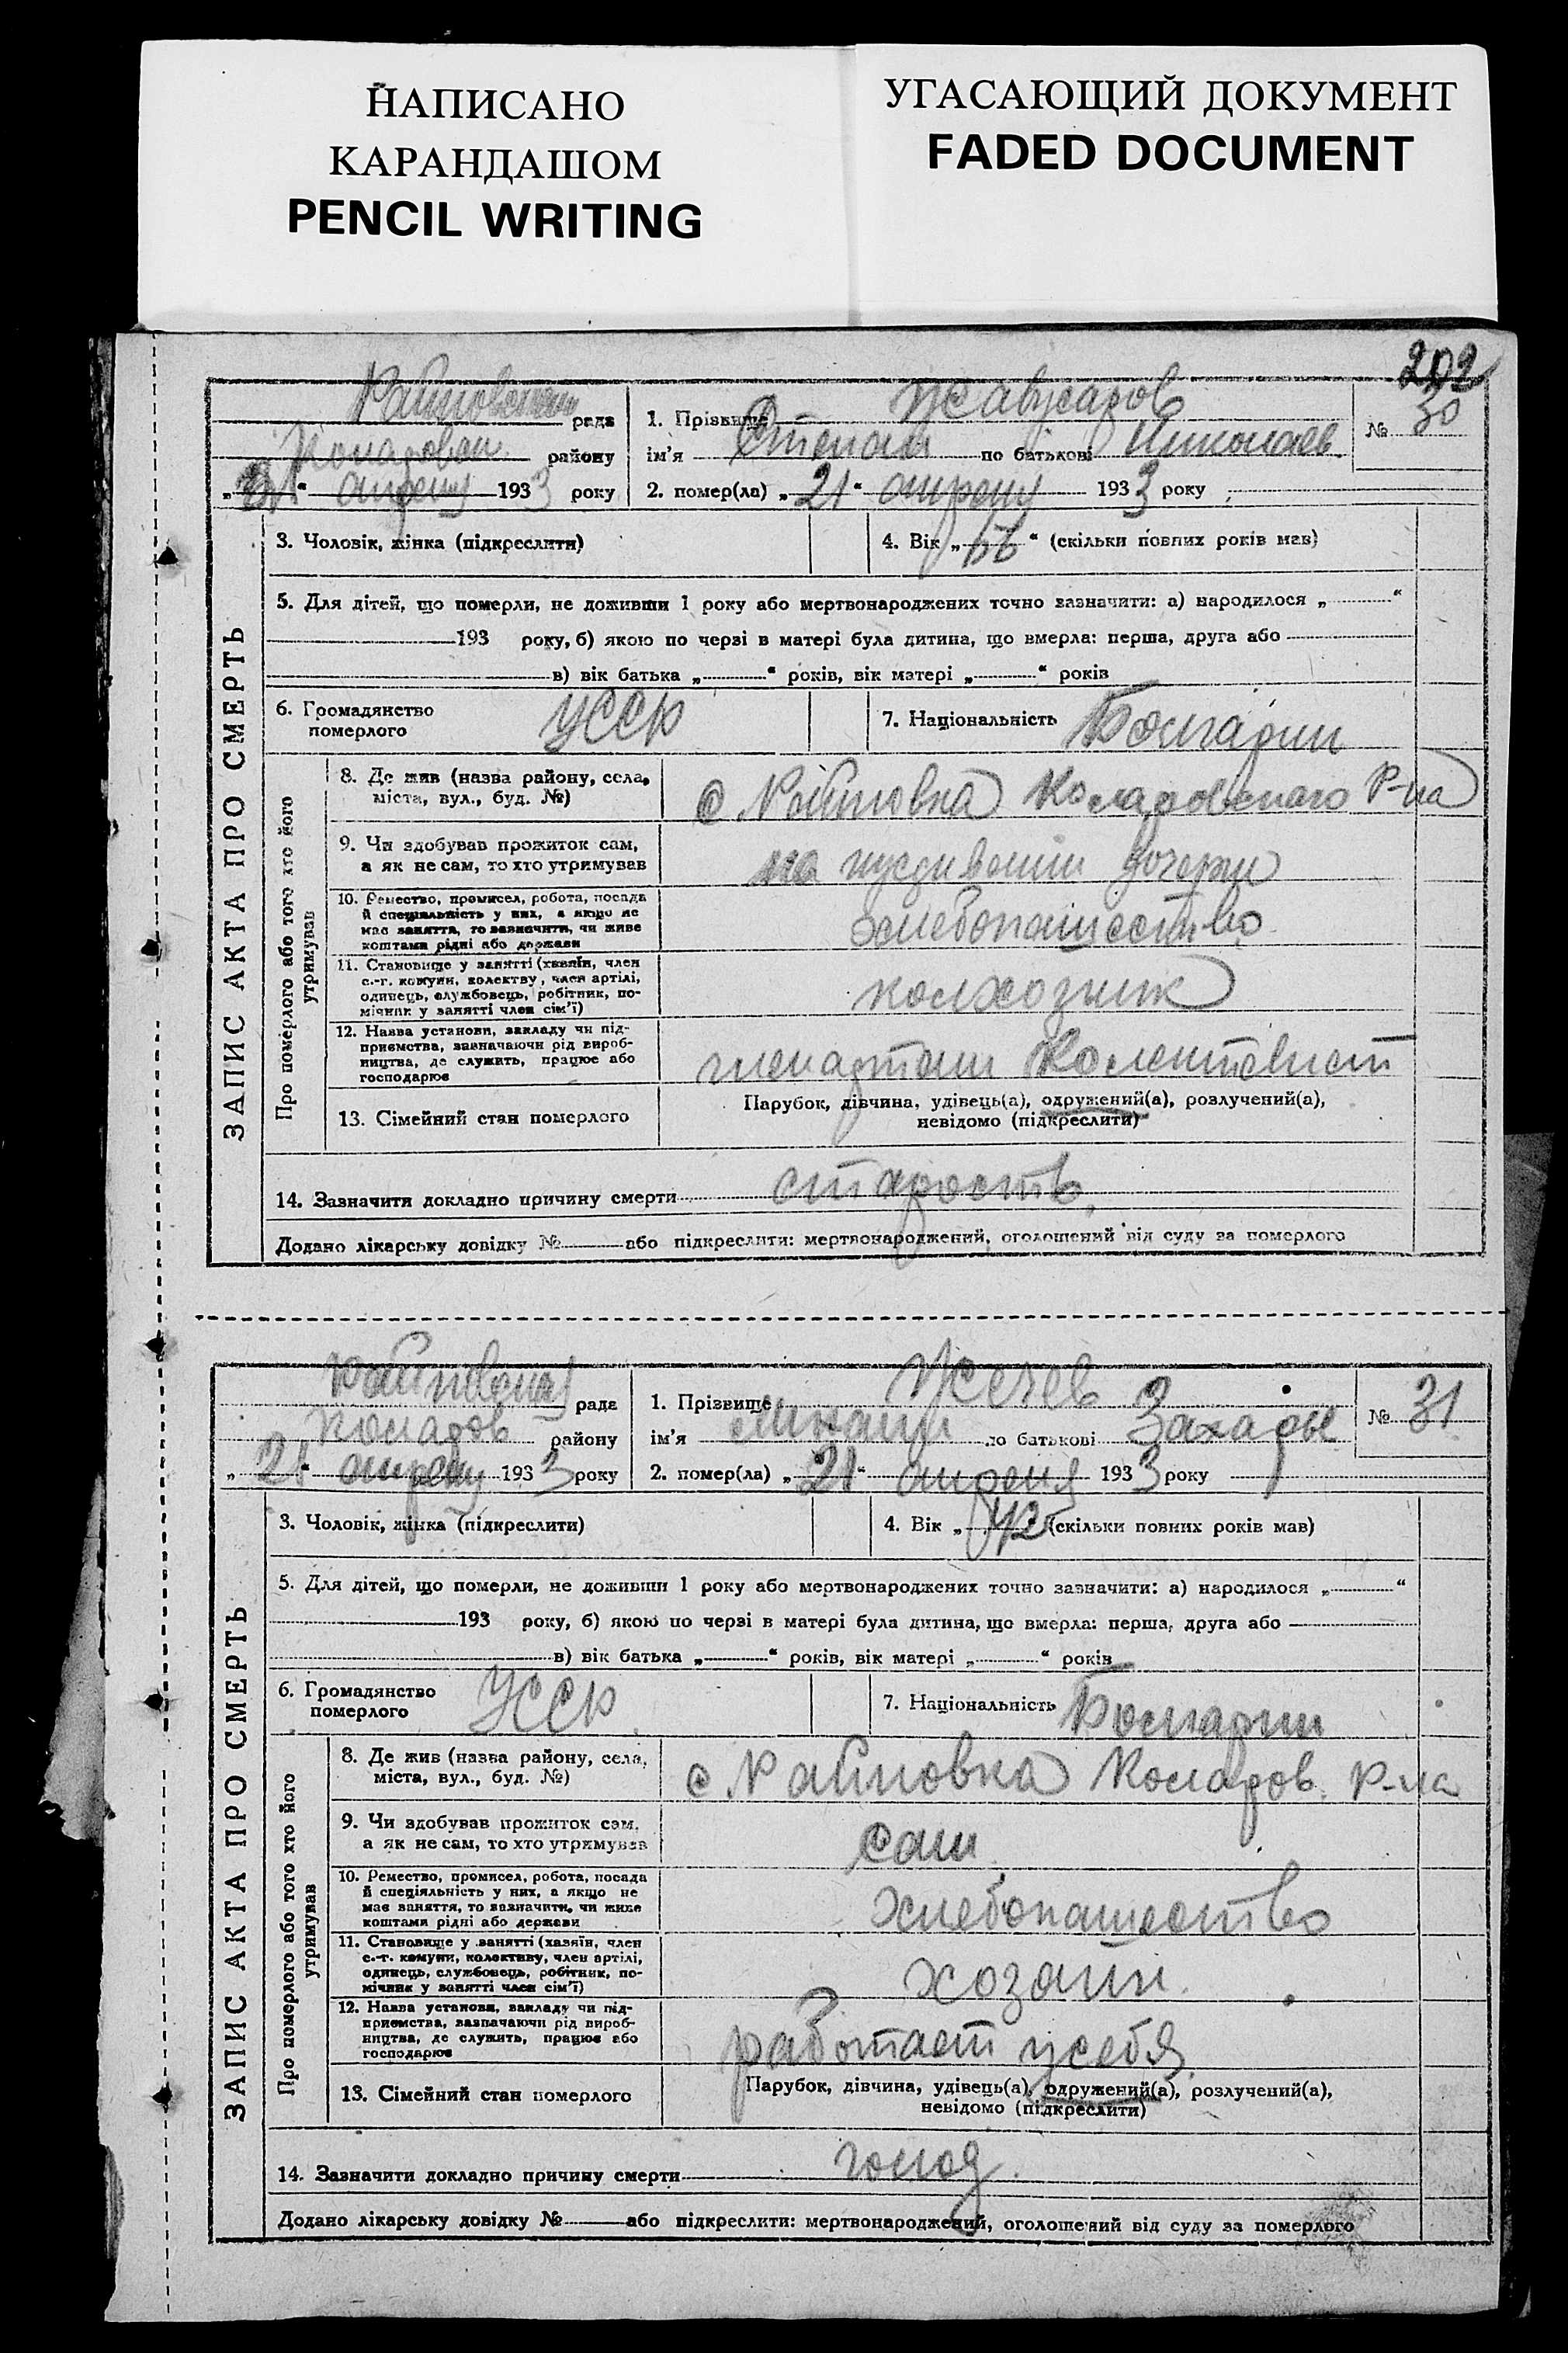 НАПИСАНО
КАРАНДАШОМ
PENCIL WRITING
УГАСАЮЩИЙ ДОКУМЕНТ
FADED DOCUMENT
202
ЗАПИС АКТА ПРО СМЕРТЬ
рада
району
"21" апреля 1933 року
1. Прізвище
ім'я Степан по батькові Николаев
2. помер(ла) "21" апреля 1933 року
№ 30
3. Чоловік, жінка (підкреслити)
4. Вік " " (скільки повних років мав)
5. Для дітей, що померли, не доживши 1 року або мертвонароджених точно зазначити: а) народилося " "
193 року, б) якою по черзі в матері була дитина, що вмерла: перша, друга або
в) вік батька " " років, вік матері " " років
6. Громадянство
померлого
УССР
7. Національність Болгарин
Про померлого або того хто його
утримував
8. Де жив (назва району, села,
міста, вул., буд. №)
с Райновка Коларовского Р-на
9. Чи здобував прожиток сам,
а як не сам, то хто утримував
на иждивении дочери
10. Ремество, промисел, робота, посада
й спеціяльність у них, а якщо не
має заняття, то зазначити, чи живе
коштами рідні або держави
хлебопашество
11. Становище у занятті (хазяїн, член
с.-г. комуни, колективу, член артілі,
одинець, службовець, робітник, по-
мічник у занятті член сім'ї)
колхозник
12. Назва установи, закладу чи під-
приємства, зазначаючи рід вироб-
ництва, де служить, працює або
господарює
13. Сімейний стан померлого
Парубок, дівчина, удівець(а), одружений(а), розлучений(а),
невідомо (підкреслити)
14. Зазначити докладно причину смерти старость
Додано лікарську довідку № або підкреслити: мертвонароджений, оголошений від суду за померлого
ЗАПИС АКТА ПРО СМЕРТЬ
рада
Коларов району
"21" апреля 1933 року
1. Прізвище
ім'я по батькові Захарье
2. помер(ла) "21" апреля 1933 року
№ 31
3. Чоловік, жінка (підкреслити)
4. Вік "42" (скільки повних років мав)
5. Для дітей, що померли, не доживши 1 року або мертвонароджених точно зазначити: а) народилося " "
193 року, б) якою по черзі в матері була дитина, що вмерла: перша, друга або
в) вік батька " " років, вік матері " " років
6. Громадянство
померлого
УССР
7. Національність Болгарин
Про померлого або того хто його
утримував
8. Де жив (назва району, села,
міста, вул., буд. №)
с Райновка Коларов. Р-на
9. Чи здобував прожиток сам,
а як не сам, то хто утримував
сам
10. Ремество, промисел, робота, посада
й спеціяльність у них, а якщо не
має заняття, то зазначити, чи живе
коштами рідні або держави
хлебопашество
11. Становище у занятті (хазяїн, член
с.-г. комуни, колективу, член артілі,
одинець, службовець, робітник, по-
мічник у занятті член сім'ї)
хозаин.
12. Назва установи, закладу чи під-
приємства, зазначаючи рід вироб-
ництва, де служить, працює або
господарює
работает у себя
13. Сімейний стан померлого
Парубок, дівчина, удівець(а), одружений(а), розлучений(а),
невідомо (підкреслити)
14. Зазначити докладно причину смерти голод.
Додано лікарську довідку № або підкреслити: мертвонароджений, оголошений від суду за померлого